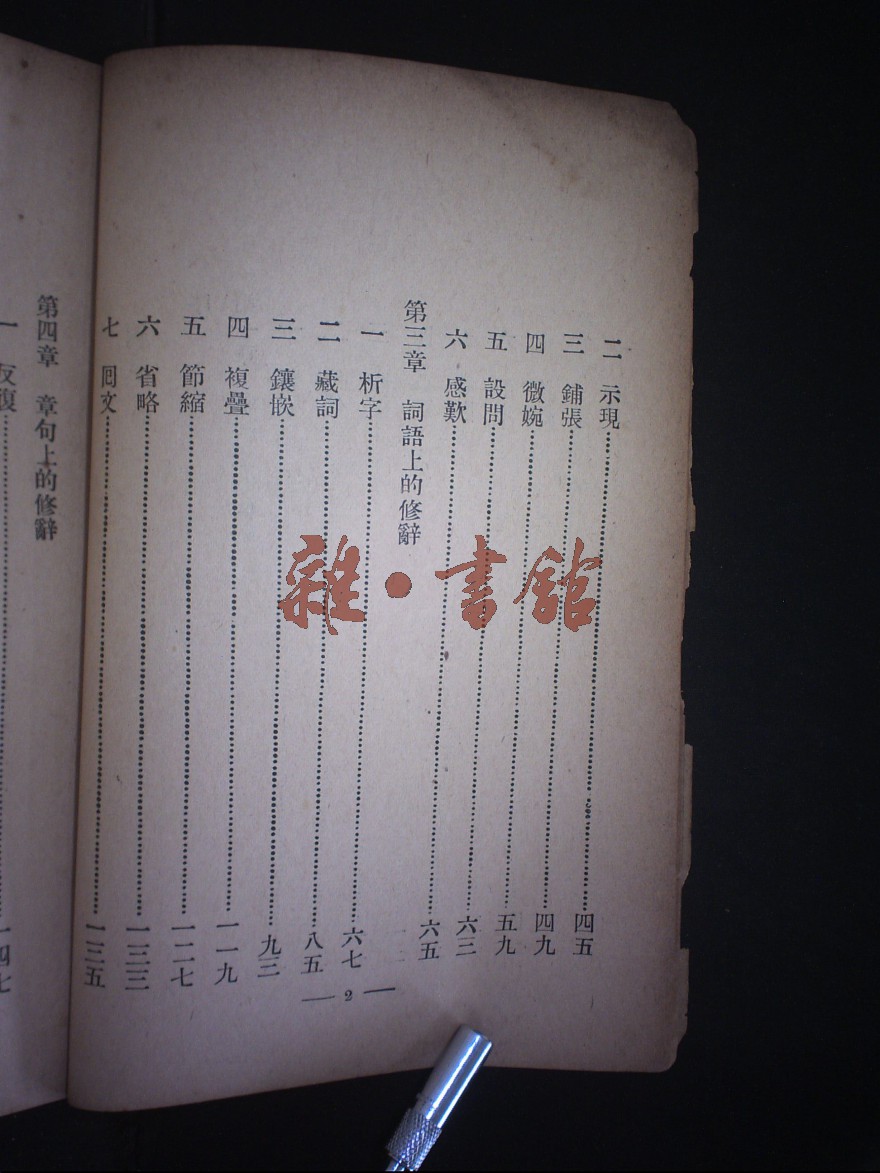 二　示現……四五
三　鋪張……四九
四　微婉……五九
五　設問……六三
六　感歎……六五
第三章　詞語上的修辭
一　析字……六七
二　藏詞……八五
三　鑲嵌……九三
四　複疊……一一九
五　節縮……一二七
六　省略……一三三
七　囘文……一三五
— 2 —
第四章　章句上的修辭
一　反復……一四七
雜・書館